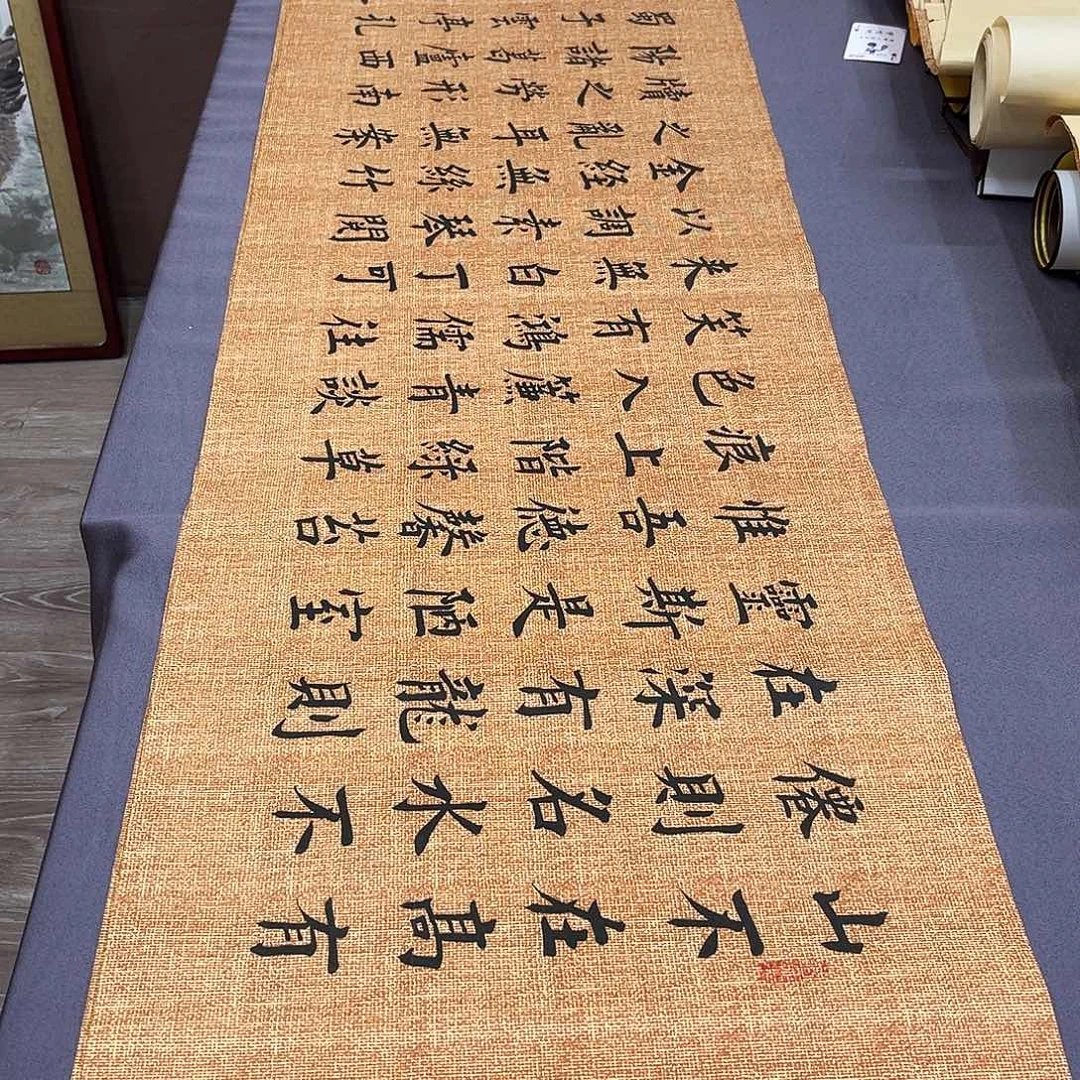 山不在髙有
僊則名水不
在深有龍則
靈斯是陋室
惟吾德馨苔
痕上階綠草
色入簾青談
笑有鴻儒往
来無白丁可
以調素琴閱
金經無絲竹
之亂耳無案
牘之勞形南
陽諸葛廬西
蜀子雲亭孔